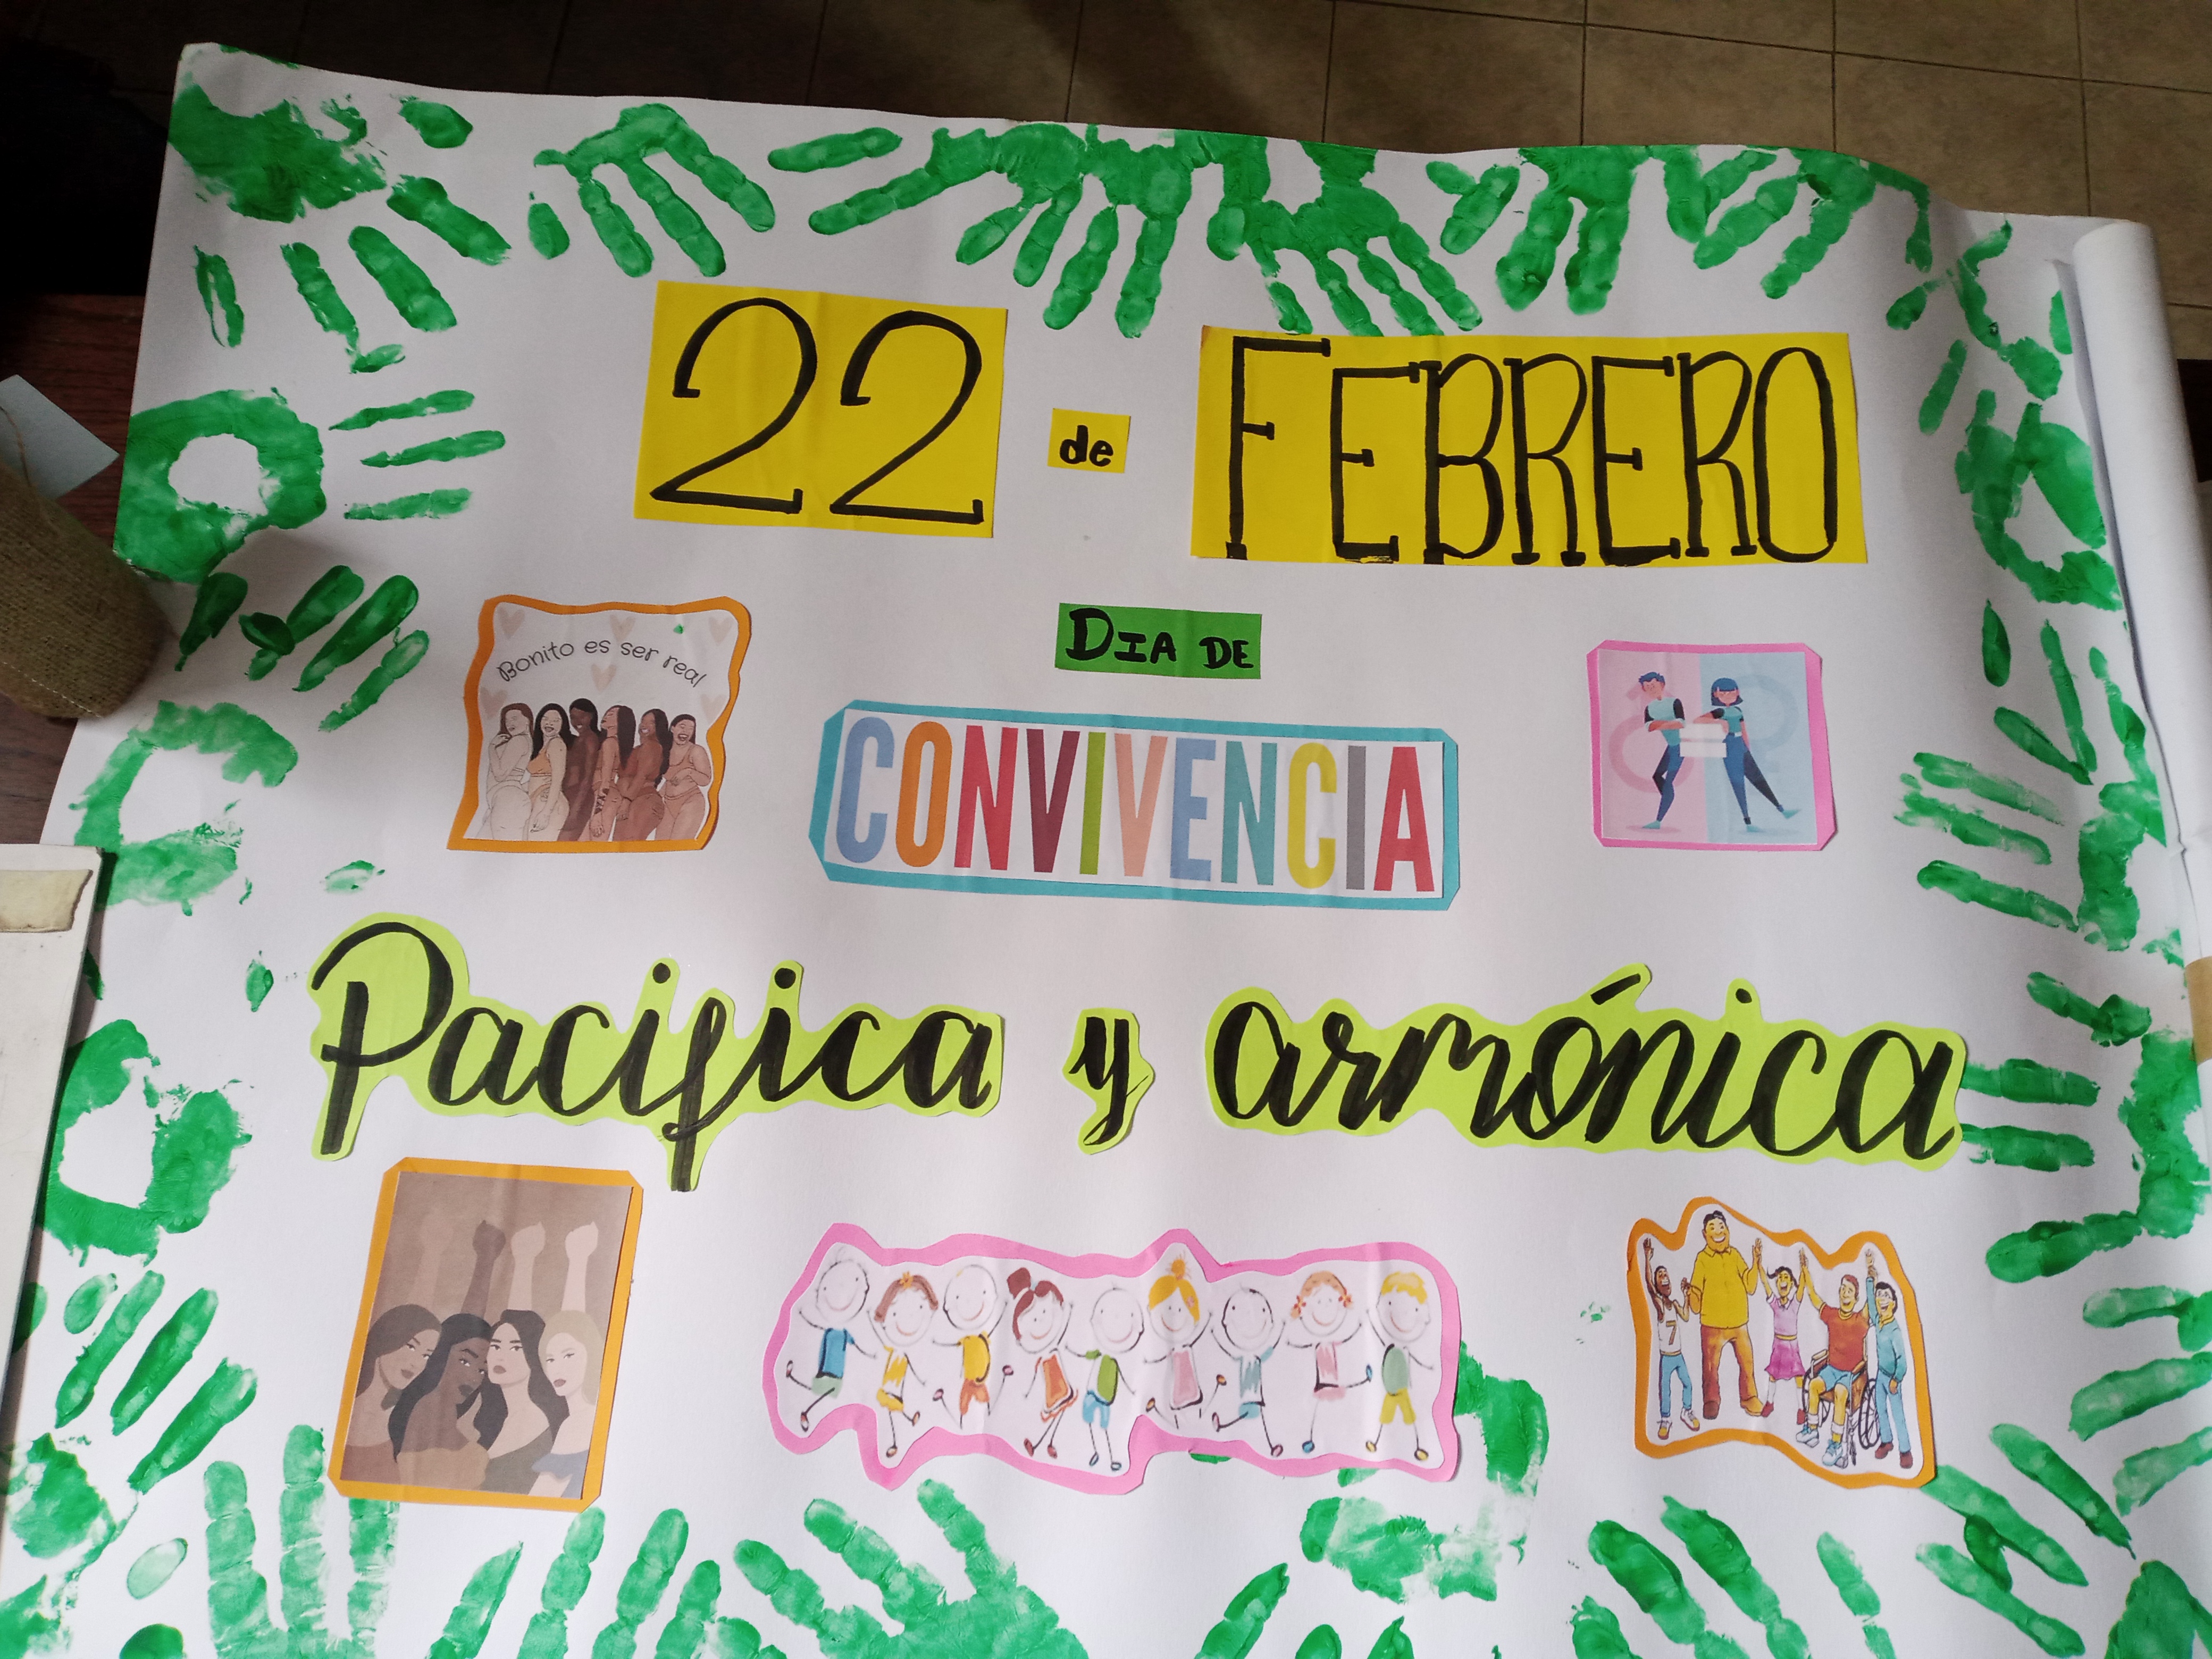 22 de FEBRERO
DIA DE
Bonito es ser real
CONVIVENCIA
Pacifica y armónica
7